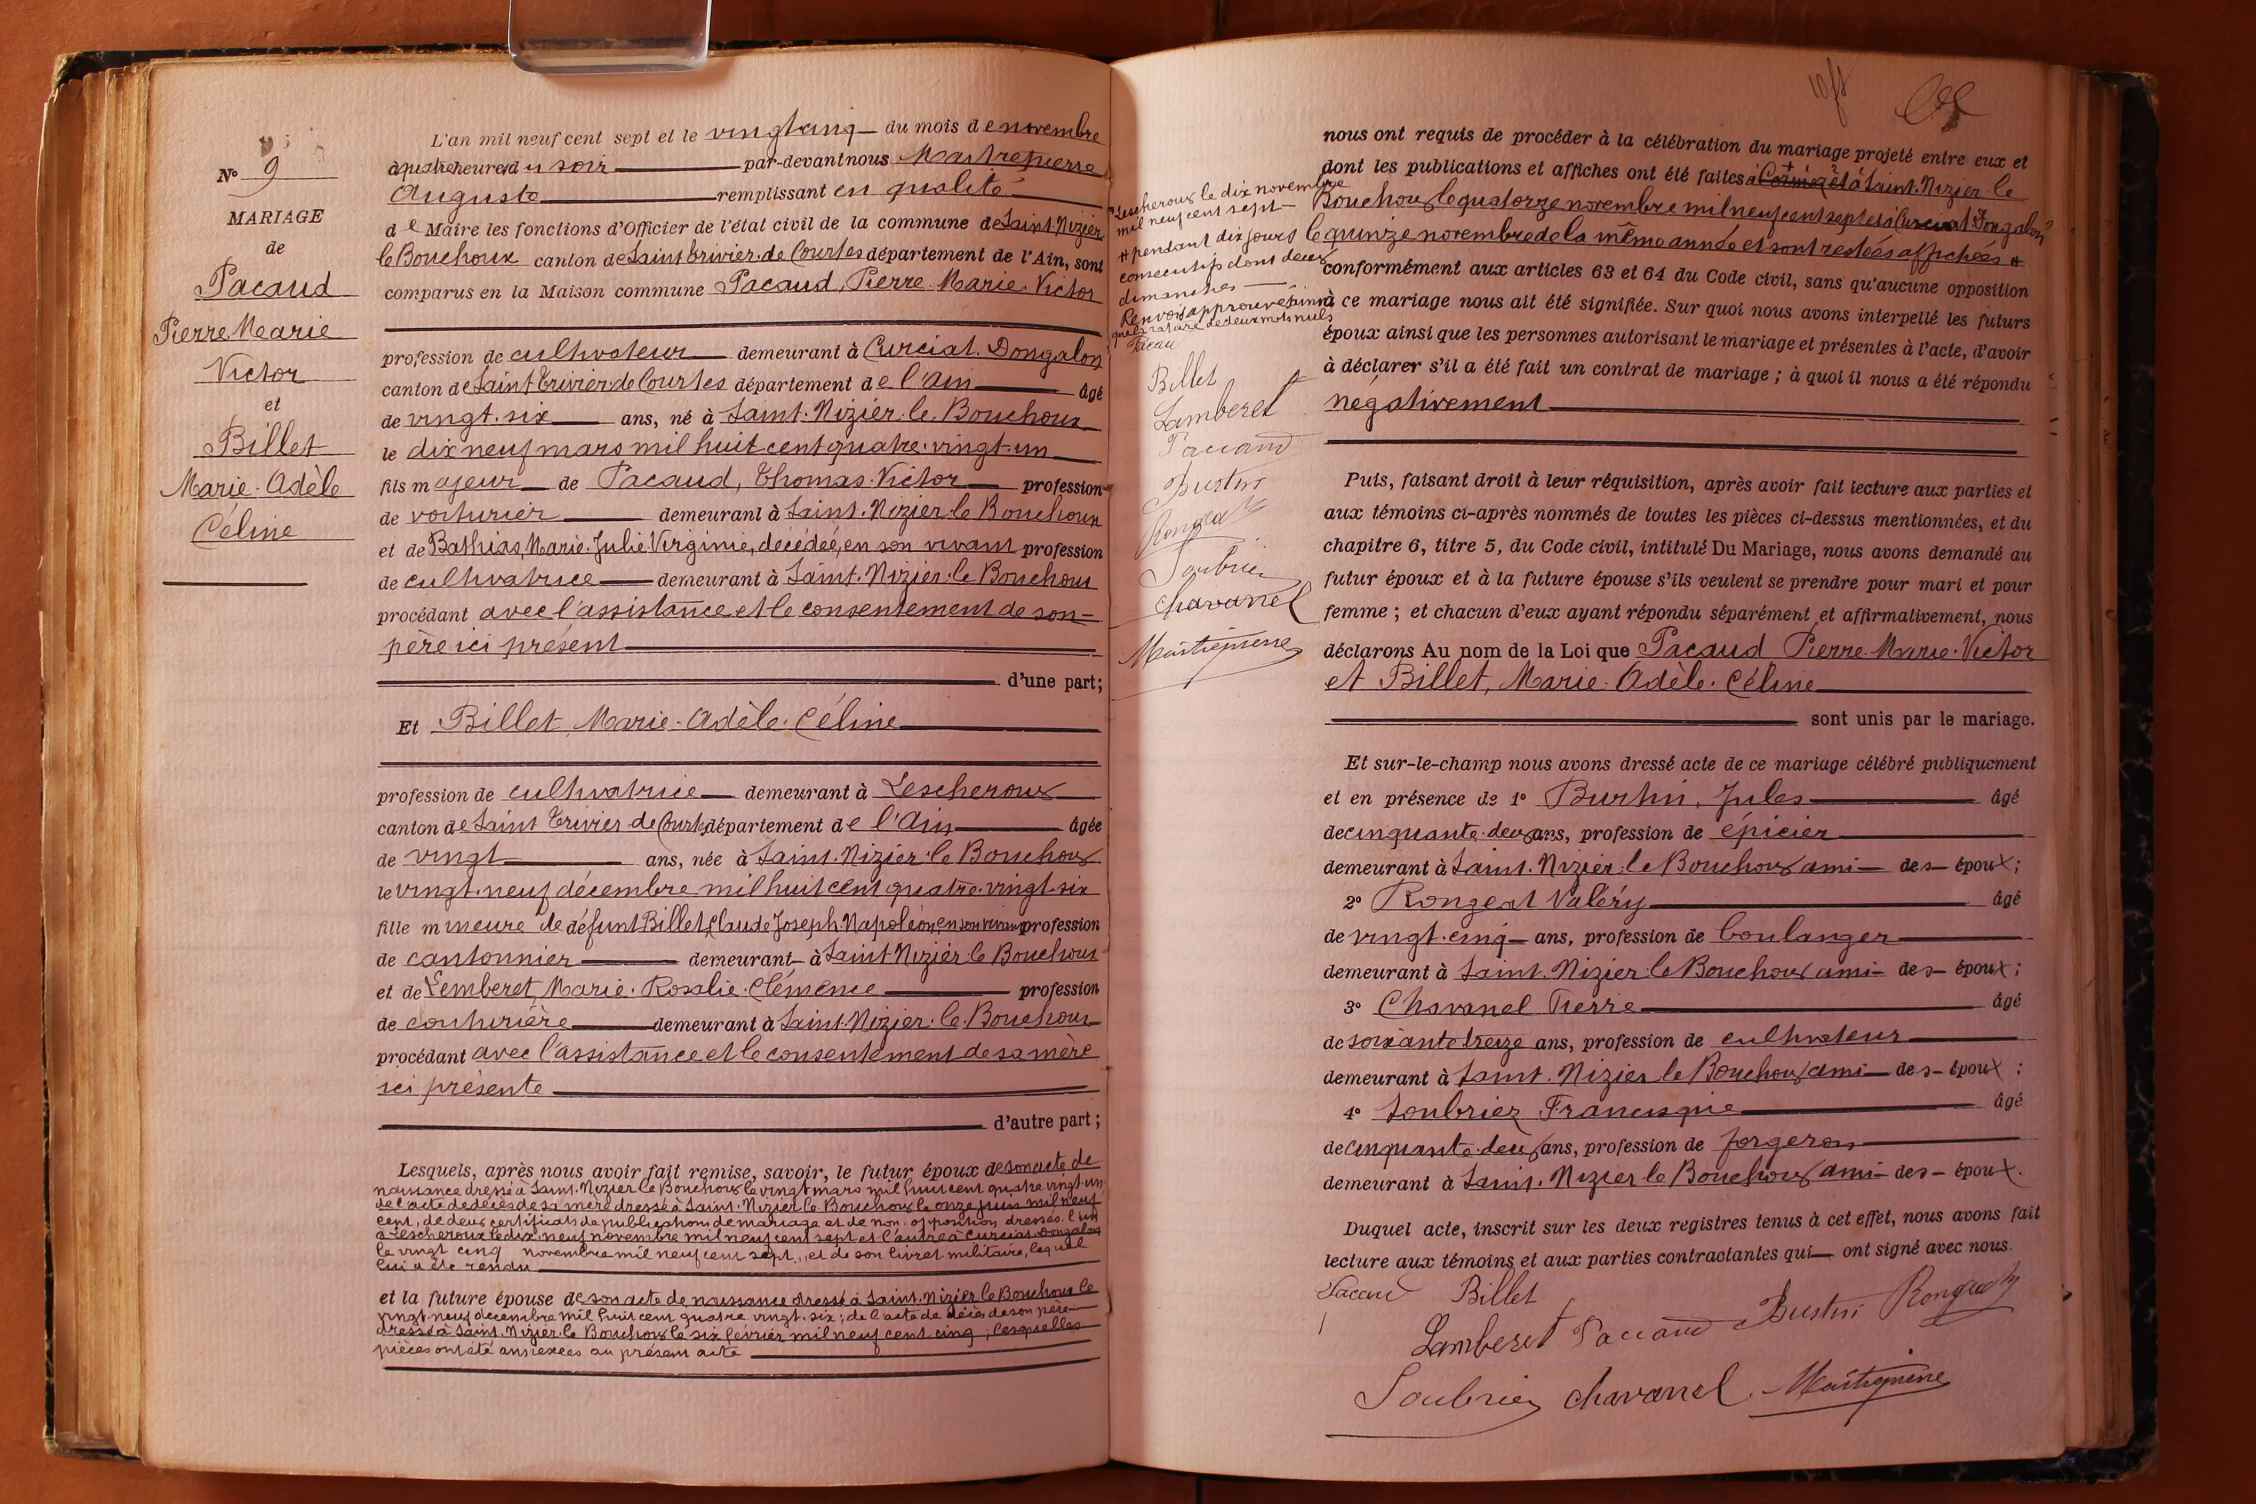 N° 9
MARIAGE
de
Pacaud
Pierre Marie
Victor
et
Billet
Marie-Adèle
Céline
L'an mil neuf cent sept et le vingt cinq du mois de novembre
à quatre heures du soir par-devant nous
Auguste remplissant en qualité
de Maire les fonctions d'Officier de l'état civil de la commune de Saint-Nizier
le Bouchoux canton de Saint trivier de Courtes département de l'Ain, sont
comparus en la Maison commune Pacaud, Pierre Marie Victor
profession de cultivateur demeurant à Curciat. Dongalon
canton de Saint Trivier de Courtes département de l'Ain âgé
de vingt-six ans, né à Saint-Nizier-le-Bouchoux
le dix neuf mars mil huit cent quatre-vingt-un
fils majeur de Pacaud, Thomas Victor profession
de voiturier demeurant à Saint-Nizier-le Bouchoux
et de Bathias, Marie-Julie Virginie, décédée, en son vivant profession
de cultivatrice demeurant à Saint-Nizier-le Bouchoux
procédant avec l'assistance et le consentement de son
père ici présent
d'une part;
Et Billet, Marie-Adèle-Céline
profession de cultivatrice demeurant à Lescheroux
canton de Saint Trivier de Courtes département de l'Ain âgée
de vingt ans, née à Saint-Nizier-le Bouchoux
le vingt-neuf décembre mil huit cent quatre-vingt-six
fille mineure de défunt Billet, Claude Joseph Napoléon, en son vivant profession
de cantonnier demeurant à Saint-Nizier-le Bouchoux
et de Lemberet, Marie-Rosalie-Clémence profession
de couturière demeurant à Saint-Nizier-le-Bouchoux
procédant avec l'assistance et le consentement de sa mère
ici présente
d'autre part;
Lesquels, après nous avoir fait remise, savoir, le futur époux de son acte de
naissance dressé à Saint-Nizier le Bouchoux le vingt mars mil huit cent quatre vingt-un
de l'acte de décès de sa mère dressé à Saint-Nizier le Bouchoux le onze juin mil neuf
cent, de deux certificats de publications de mariage et de non-opposition dressés l'un
à Lescheroux le dix-neuf novembre mil neuf cent sept et l'autre à Curciat Dongalon
le vingt cinq novembre mil neuf cent sept, et de son livret militaire, lequel
lui a été rendu
et la future épouse de son acte de naissance dressé à Saint-Nizier le Bouchoux le
vingt-neuf décembre mil huit cent quatre vingt-six; de l'acte de décès de son père
dressé à Saint-Nizier-le Bouchoux le six février mil neuf cent cinq, lesquelles
pièces ont été annexées au présent acte
Lescheroux le dix novembre
mil neuf cent sept
# pendant dix jours
consécutifs dont deux
dimanches
Renvoi approuvé ainsi
que la rature de deux mots nuls
Pacau
Billet
Lamberet
Pacaud
Burtin
Rongeat
Soubrier
Chavanel
nous ont requis de procéder à la célébration du mariage projeté entre eux et
dont les publications et affiches ont été faites à Saint-Nizier le
Bouchoux le quatorze novembre mil neuf cent sept et à Curciat Dongalon
le quinze novembre de la même année et sont restées affichées #
conformément aux articles 63 et 64 du Code civil, sans qu'aucune opposition
à ce mariage nous ait été signifiée. Sur quoi nous avons interpellé les futurs
époux ainsi que les personnes autorisant le mariage et présentes à l'acte, d'avoir
à déclarer s'il a été fait un contrat de mariage; à quoi il nous a été répondu
négativement
Puis, faisant droit à leur réquisition, après avoir fait lecture aux parties et
aux témoins ci-après nommés de toutes les pièces ci-dessus mentionnées, et du
chapitre 6, titre 5, du Code civil, intitulé Du Mariage, nous avons demandé au
futur époux et à la future épouse s'ils veulent se prendre pour mari et pour
femme; et chacun d'eux ayant répondu séparément et affirmativement, nous
déclarons Au nom de la Loi que Pacaud Pierre-Marie-Victor
et Billet, Marie-Adèle-Céline
sont unis par le mariage.
Et sur-le-champ nous avons dressé acte de ce mariage célébré publiquement
et en présence de 1° Burtin, Jules âgé
de cinquante-deux ans, profession de épicier
demeurant à Saint-Nizier-le Bouchoux ami des époux;
2° Rongeat Valéry âgé
de vingt-cinq ans, profession de boulanger
demeurant à Saint-Nizier le Bouchoux ami des époux;
3° Chavanel Pierre âgé
de soixante treize ans, profession de cultivateur
demeurant à Saint-Nizier le Bouchoux ami des époux;
4° Soubrier Francisque âgé
de cinquante-deux ans, profession de forgeron
demeurant à Saint-Nizier-le Bouchoux ami des époux.
Duquel acte, inscrit sur les deux registres tenus à cet effet, nous avons fait
lecture aux témoins et aux parties contractantes qui ont signé avec nous.
Pacaud Billet
Lamberet Pacaud Burtin Rongeat
Soubrier Chavanel